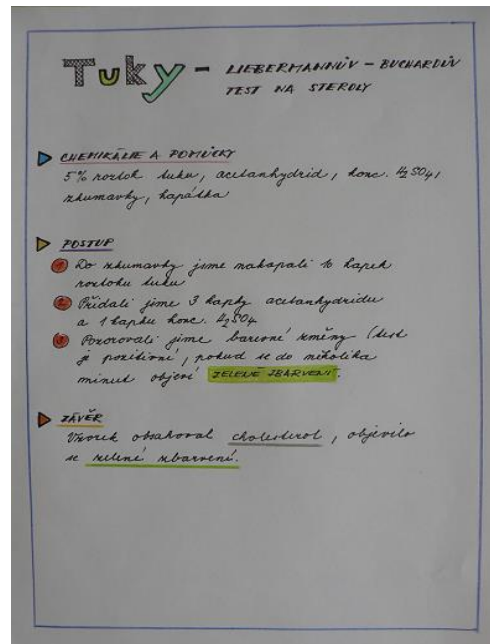 Tuky - LIEBERMANNŮV - BUCHARDŮV
TEST NA STEROLY
CHEMIKÁLIE A POMŮCKY
5% roztok tuku, acetanhydrid, konc. H2SO4,
zkumavky, kapátka
POSTUP
1 Do zkumavky jsme nakapali 10 kapek
roztoku tuku
2 Přidali jsme 3 kapky acetanhydridu
a 1 kapku konc. H2SO4
3 Pozorovali jsme barevné změny (test
je pozitivní, pokud se do několika
minut objeví ZELENÉ ZBARVENÍ.
ZÁVĚR
Vzorek obsahoval cholesterol, objevilo
se zelené zbarvení.